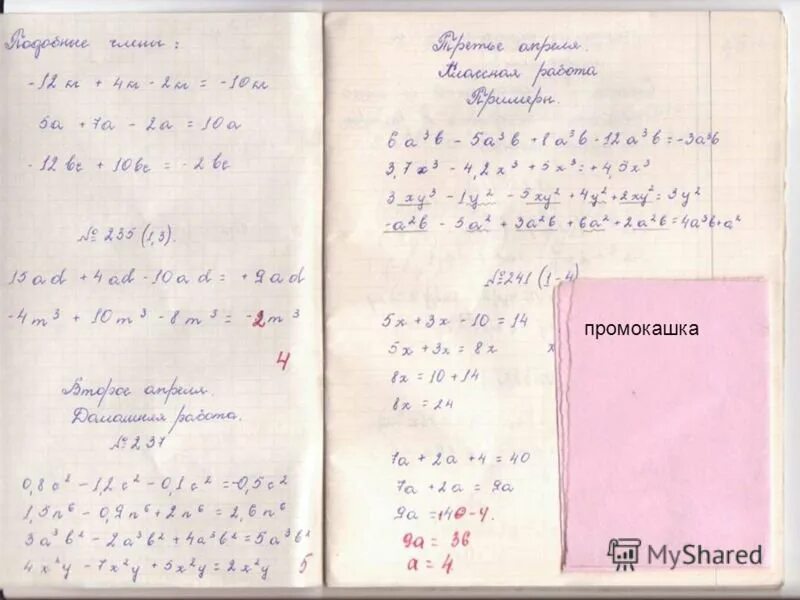 Подобные члены:
-12кг + 4кг - 2кг = -10кг
5a + 7a - 2a = 10a
-12bc + 10bc = -2bc
№ 235 (1,3).
15ad + 4ad - 10ad = +9ad
-4m³ + 10m³ - 8m³ = -2m³
4
Второе апреля.
Домашняя работа.
№ 237
0,8c² - 1,2c² - 0,1c² = -0,5c²
1,5n⁶ - 0,9n⁶ + 2n⁶ = 2,6n⁶
3a³b² - 2a³b² + 4a³b² = 5a³b²
4x²y - 7x²y + 5x²y = 2x²y
5
Третье апреля.
Классная работа
Примеры.
6a³b - 5a³b + 8a³b - 12a³b = -3a³b
3,7x³ - 4,2x³ + 5x³ = +4,5x³
3xy³ - 1y² - 5xy² + 4y² + 2xy² = 3y²
-a²b - 5a² + 3a²b + 6a² + 2a²b = 4a³b + a²
№ 241 (1-4)
5x + 3x - 10 = 14
5x + 3x = 8x
x
8x = 10 + 14
8x = 24
7a + 2a + 4 = 40
7a + 2a = 9a
9a = 40 - 4.
9a = 36
a = 4
промокашка
MyShared